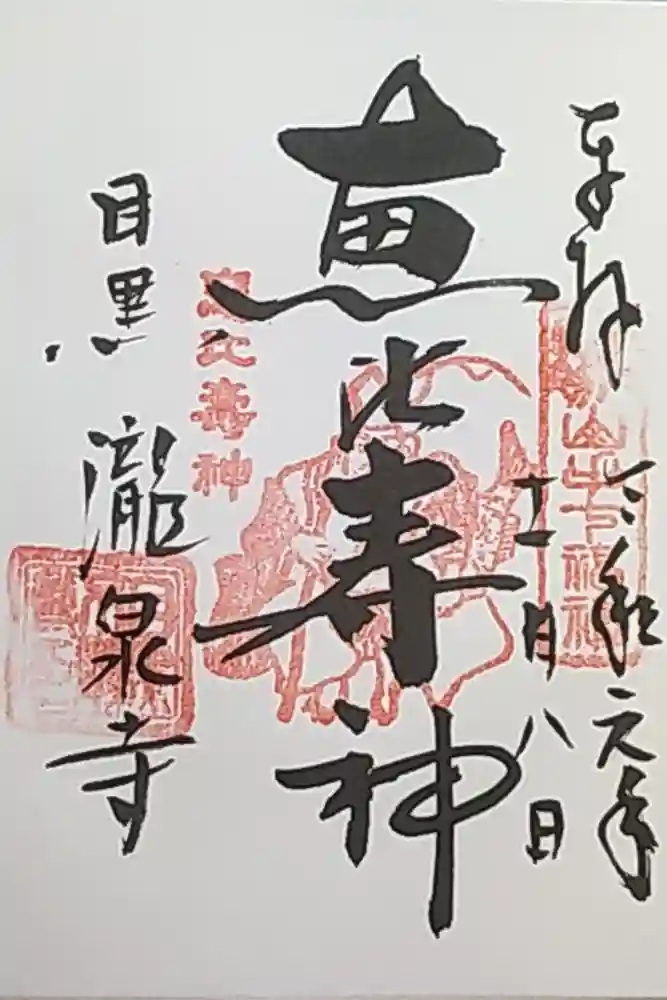 奉拝
令和元年
十二月八日
山手七福神
恵比寿神
恵比寿神
目黒 瀧泉寺